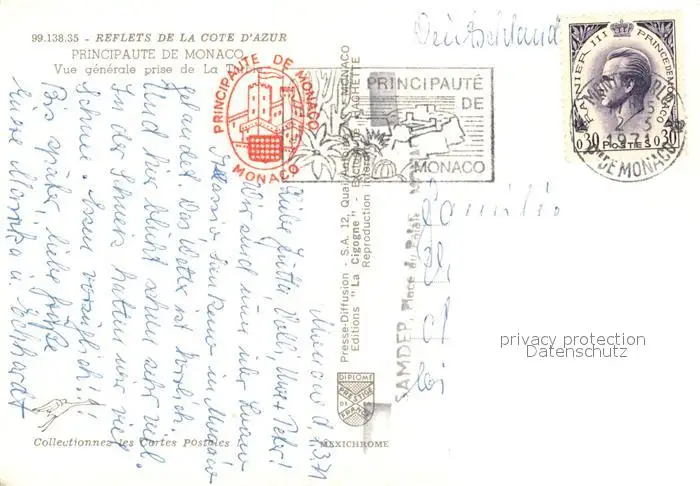 99.138.35 - REFLETS DE LA COTE D'AZUR
PRINCIPAUTE DE MONACO
Vue générale prise de La
PRINCIPAUTE DE MONACO
MONACO
PRINCIPAUTÉ
DE
MONACO
Deutschland
RAINIER III PRINCE DE MONACO
0,30 POSTES 0,30
2-3
1971
Pté DE MONACO
Monaco, d. 1.3.71
Liebe Jutta, Willi, Uwe + Peter!
Wir sind nun über Lugano
Alassio San Remo in Monaco
gelandet. Das Wetter ist herrlich.
Und hier blüht schon sehr viel.
In der Schweiz hatten wir viel
Schnee. Essen vorzüglich!!
Bis später, liebe Grüße
Eure Monika u. Eckhardt
Presse-Diffusion - S.A. 12, Quai
MONACO
Editions "La Cigogne" - HACHETTE
Reproduction
SAMDEP, Place du Palais
Familie
DIPLOME
PRESTIGE
DE
FRANCE
Collectionnez les Cartes Postales
MEXICHROME
privacy protection
Datenschutz